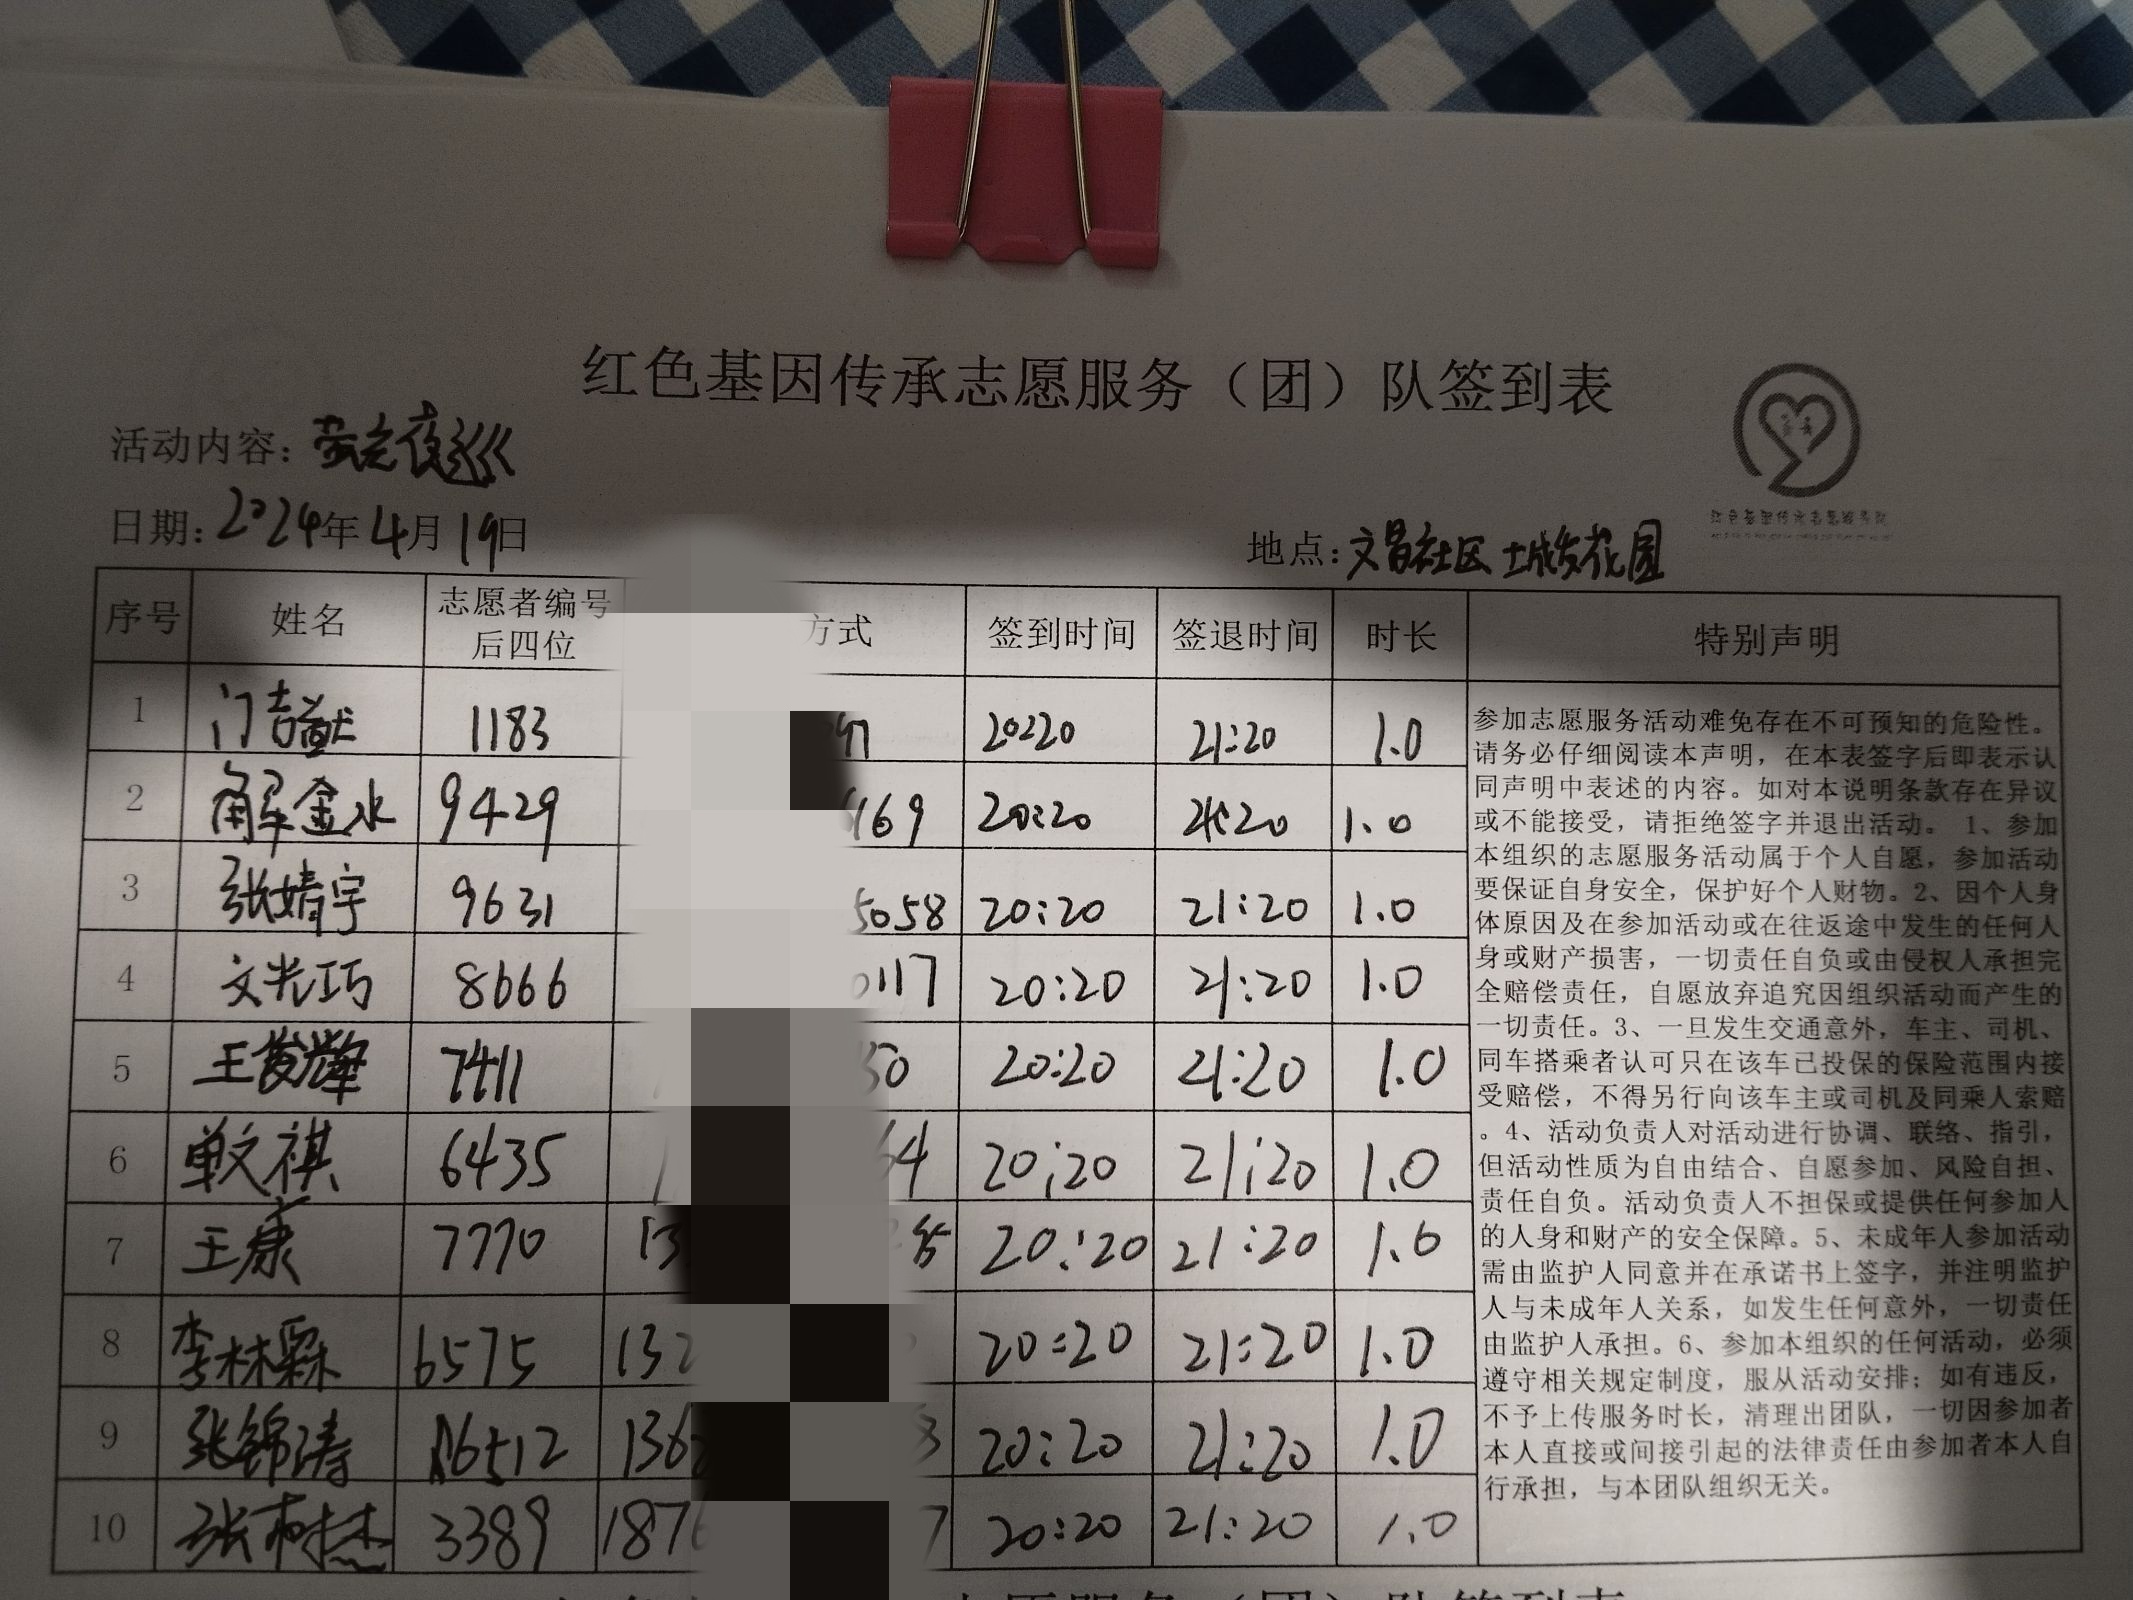 红色基因传承志愿服务（团）队签到表
活动内容：荧光夜巡
日期：2024年4月19日
地点：文昌社区 城发花园
序号 姓名 志愿者编号后四位 方式 签到时间 签退时间 时长 特别声明
1 门吉 1183 20:20 21:20 1.0
2 解金水 9429 169 20:20 21:20 1.0
3 张婧宇 9631 5058 20:20 21:20 1.0
4 文光巧 8666 0117 20:20 21:20 1.0
5 王俊辉 7411 50 20:20 21:20 1.0
6 单文祺 6435 64 20:20 21:20 1.0
7 王康 7770 13 20:20 21:20 1.0
8 李林霖 6575 132 20:20 21:20 1.0
9 张锦涛 6512 136 20:20 21:20 1.0
10 张树杰 3389 187 7 20:20 21:20 1.0
参加志愿服务活动难免存在不可预知的危险性。
请务必仔细阅读本声明，在本表签字后即表示认
同声明中表述的内容。如对本说明条款存在异议
或不能接受，请拒绝签字并退出活动。 1、参加
本组织的志愿服务活动属于个人自愿，参加活动
要保证自身安全，保护好个人财物。2、因个人身
体原因及在参加活动或在往返途中发生的任何人
身或财产损害，一切责任自负或由侵权人承担完
全赔偿责任，自愿放弃追究因组织活动而产生的
一切责任。3、一旦发生交通意外，车主、司机、
同车搭乘者认可只在该车已投保的保险范围内接
受赔偿，不得另行向该车主或司机及同乘人索赔
。4、活动负责人对活动进行协调、联络、指引，
但活动性质为自由结合、自愿参加、风险自担、
责任自负。活动负责人不担保或提供任何参加人
的人身和财产的安全保障。5、未成年人参加活动
需由监护人同意并在承诺书上签字，并注明监护
人与未成年人关系，如发生任何意外，一切责任
由监护人承担。6、参加本组织的任何活动，必须
遵守相关规定制度，服从活动安排；如有违反，
不予上传服务时长，清理出团队，一切因参加者
本人直接或间接引起的法律责任由参加者本人自
行承担，与本团队组织无关。
志愿服务（团）队签到表